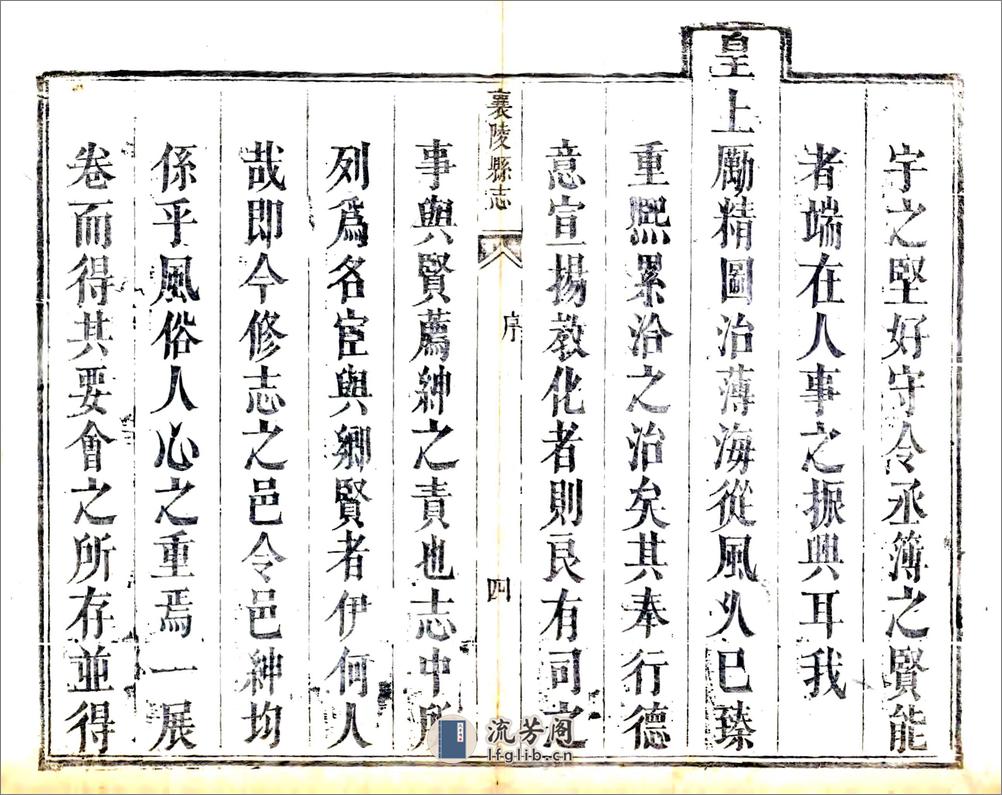 宇之堅好守令丞簿之賢能
者端在人事之振興耳我
皇上勵精圖治薄海從風久已臻
重熙累洽之治矣其奉行德
意宣揚教化者則良有司之
襄陵縣志
序
四
事與賢薦紳之責也志中所
列爲名宦與鄉賢者伊何人
哉即今修志之邑令邑紳均
係乎風俗人心之重焉一展
卷而得其要會之所存並得
流芳阁
lfglib.cn